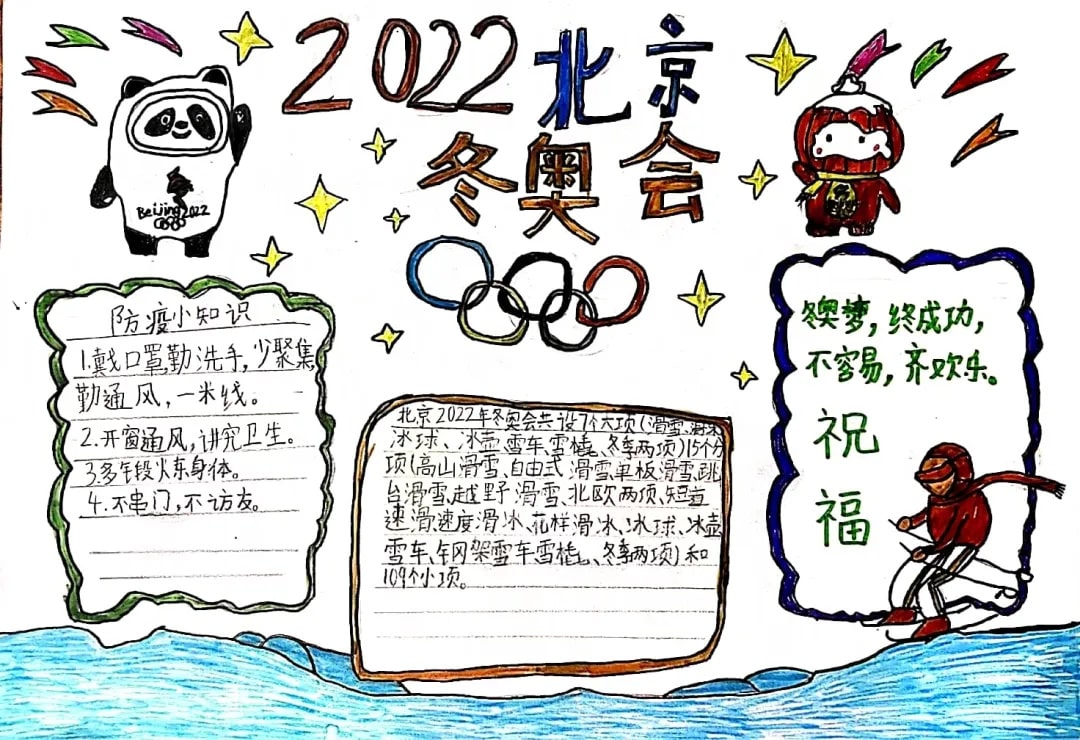 2022北京
冬奥会
Beijing2022
防疫小知识
1.戴口罩,勤洗手,少聚集,
勤通风,一米线。
2.开窗通风,讲究卫生。
3.多锻火东身体。
4.不串门,不访友。
北京2022年冬奥会共设7个大项(滑雪、滑冰
冰球、冰壶、雪车、雪橇、冬季两项)15个分
项(高山滑雪、自由式滑雪、单板滑雪、跳
台滑雪、越野滑雪、北欧两项、短道
速滑、速度滑冰、花样滑冰、冰球、冰壶
雪车、钢架雪车、雪橇、冬季两项)和
109个小项。
冬奥梦,终成功,
不容易,齐欢乐。
祝
福